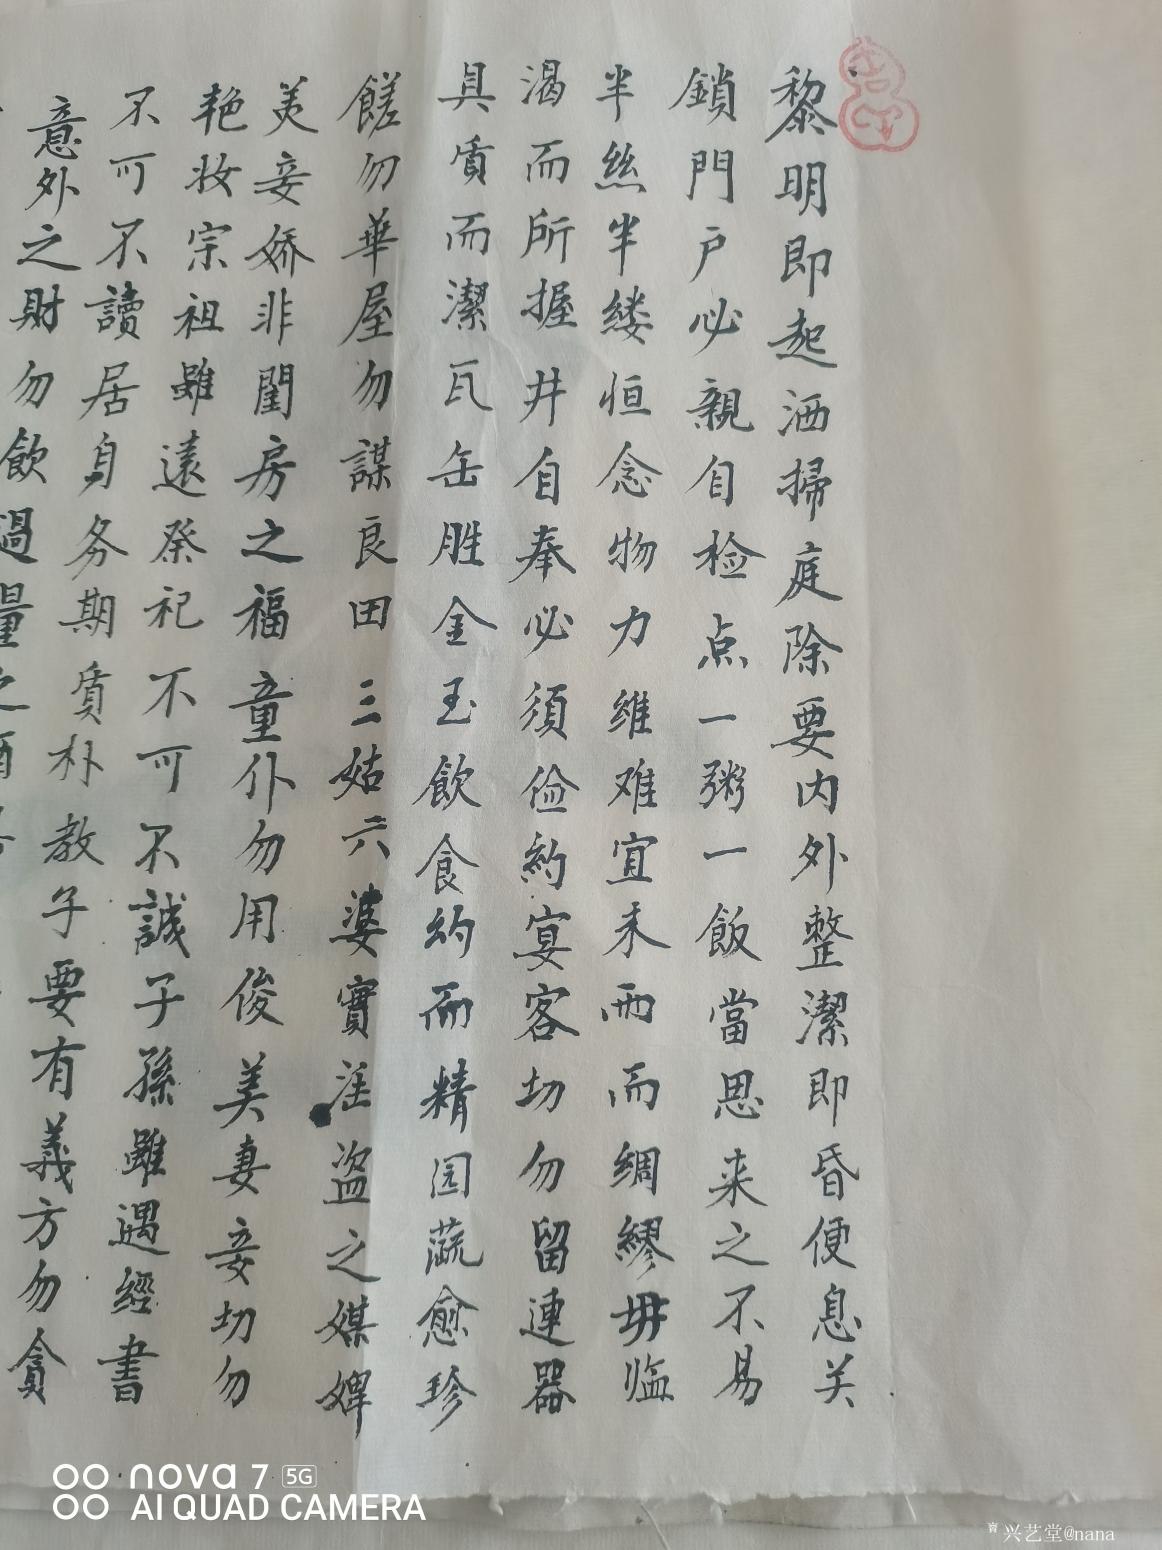 黎明即起洒掃庭除要内外整潔即昏便息关
鎖門户必親自检点一粥一飯當思来之不易
半絲半缕恒念物力维难宜未雨而绸繆毋临
渴而所握井自奉必須俭約宴客切勿留連器
具质而潔瓦缶胜金玉飲食約而精园蔬愈珍
饈勿華屋勿謀良田三姑六婆實淫盗之媒婢
美妾娇非閨房之福童仆勿用俊美妻妾切勿
艳妆宗祖雖遠祭祀不可不誠子孫雖遇經書
不可不讀居身务期质朴教子要有義方勿貪
意外之財勿飲過量之酒
nova 7 5G
AI QUAD CAMERA
兴艺堂@nana